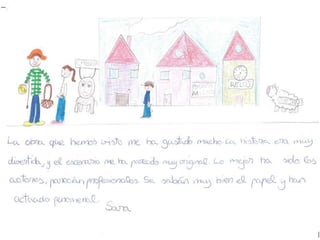 RELOJ
La obra que hemos visto me ha gustado mucho La historia era muy
divertida, y el escenario me ha parecido muy original. Lo mejor ha sido los
actores, parecían profesionales. Se sabían muy bien el papel y han
actuado fenomenal.
Sara